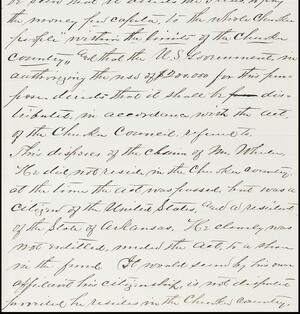 the money per capita, to the whole Cherokee
people "within the limits of the Cherokee
Country," and that the U.S. Government, in
authorizing the use of for this pur-
pose decides that it shall be dis-
tributed, in accordance with the act,
of the Cherokee Council, referred to.
This disposes of the claim of Mr. Wheeler.
He did not reside in the Cherokee country
at the time the act was passed, but was a
citizen of the United States, and a resident
of the State of Arkansas. He clearly was
not entitled, under the act, to a share
in the fund. It would seem by his own
affidavit his citizenship is not disputed
provided he resides in the Cherokee country.